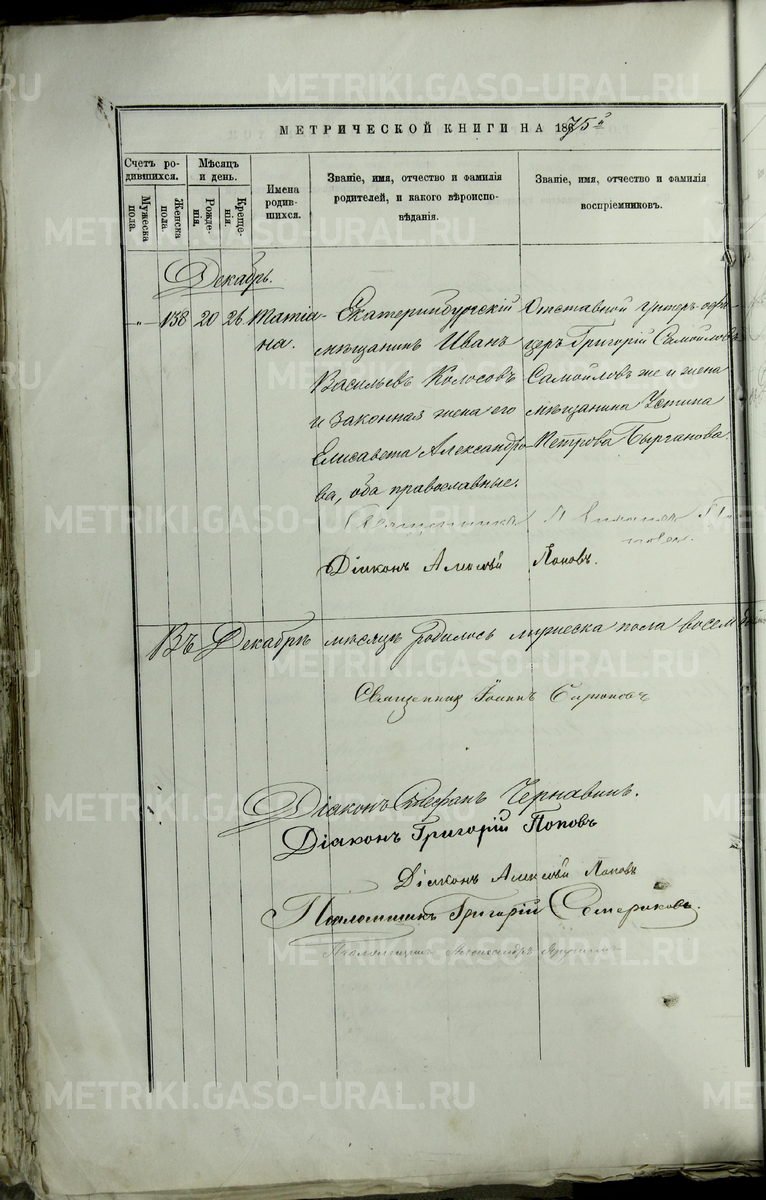 METRIKI.GASO-URAL.RU
МЕТРИЧЕСКОЙ КНИГИ НА 1875й
Счетъ ро-
дившихся.
Мужеска пола.
Женска пола.
Мѣсяцъ и день.
Рожде-
нія.
Креще-
нія.
Имена родив-
шихся.
Званіе, имя, отчество и фамилія
родителей, и какого вѣроиспо-
вѣданія.
Званіе, имя, отчество и фамилія
воспріемниковъ.
Декабрь.
„ 138 20 26 Татіа-
на.
Екатеринбургскій
мѣщанинъ Иванъ
Васильевъ Колосовъ
и законная жена его
Елисавета Александро-
ва, оба православные.
Отставной Унтеръ-офи-
церъ Григорій Самойловъ
Самойловъ же и жена
мѣщанина Устина
Петрова Быргинова
Діаконъ Алексѣй Поповъ.
Въ Декабрѣ мѣсяцѣ родилось мужеска пола восемь
Священник Іоаннъ
Діаконъ Стефанъ Чернавинъ.
Діаконъ Григорій Поповъ
Діаконъ Алексѣй Поповъ
Псаломщикъ Григорій
Псаломщикъ Александръ